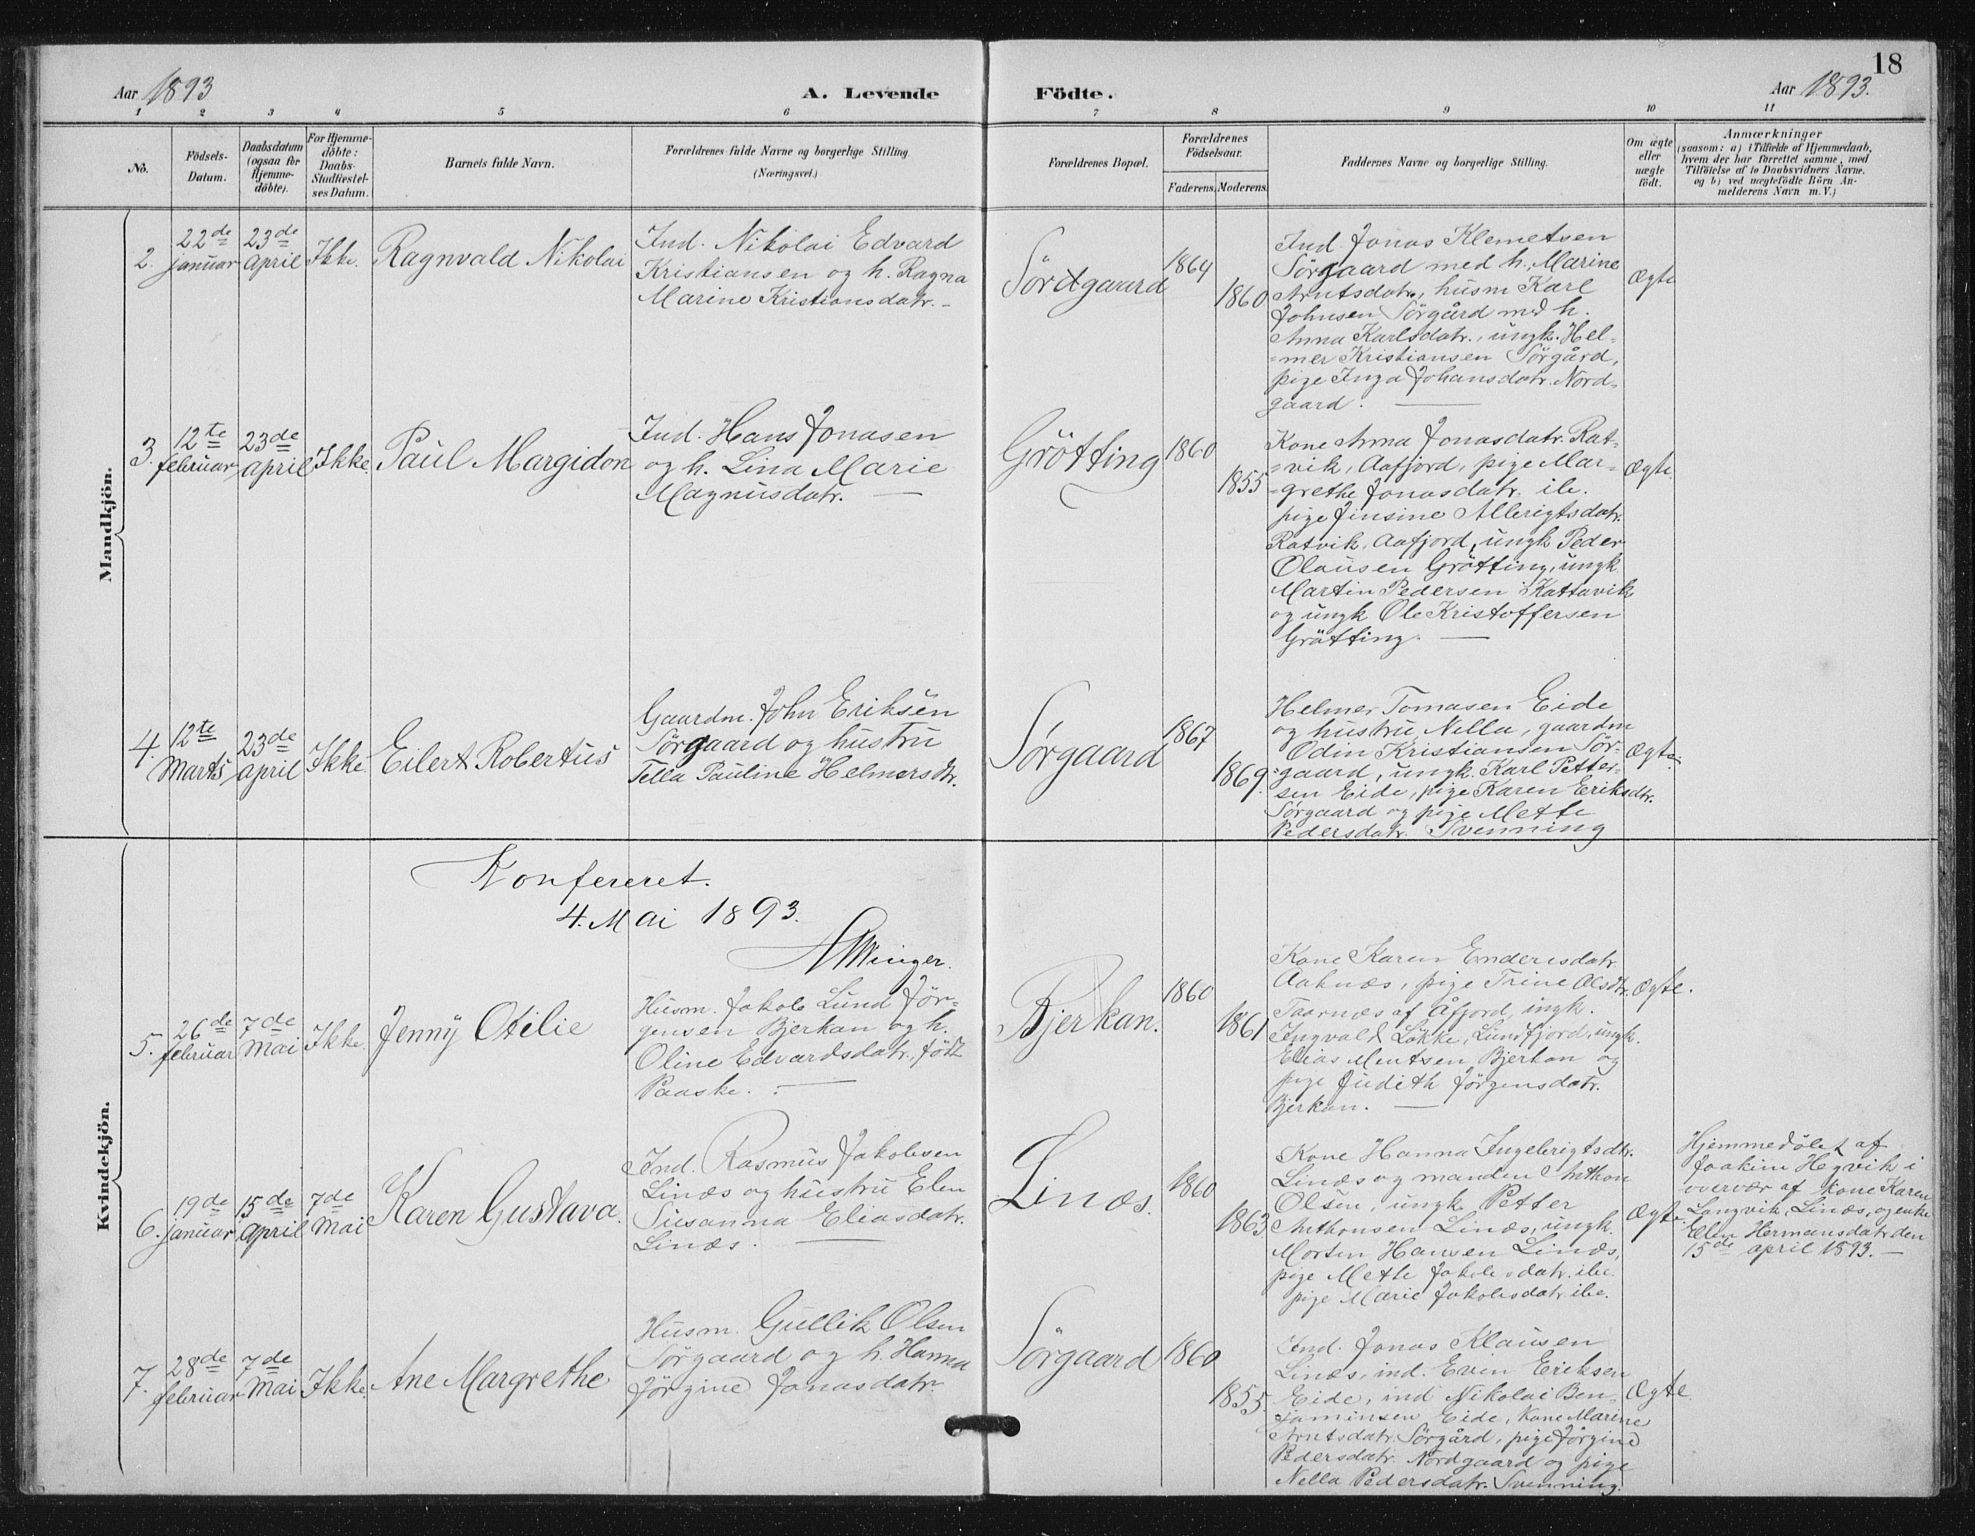 18
Aar 1893
A. Levende Födte.
Aar 1893.
1 2 3 4 5 6 7 8 9 10 11
No.
Födsels-
Datum.
Daabsdatum
(ogsaa for
Hjemme-
döbte).
For Hjemme-
döbte:
Daabs-
Stadfæstel-
ses Datum.
Barnets fulde Navn.
Forældrenes fulde Navne og borgerlige Stilling.
(Næringsvei.)
Forældrenes Bopæl.
Forældrenes
Födselsaar.
Faderens. Moderens.
Faddernes Navne og borgerlige Stilling.
Om ægte
eller
uægte
født.
Anmærkninger
(saasom: a) i Tilfælde af Hjemmedaab,
hvem der har forrettet samme, med
Tilföielse af to Daabsvidners Navne.
og b) ved uægtefödte Börn An-
melderens Navn m. V.)
Mandkjön.
2.
22de
januar
23de
april
Ikke.
Ragnvald Nikolai
Ind. Nikolai Edvard
Kristiansen og h. Ragna
Marine Kristiansdatr. -
Sördgaard
1864
1860
Ind. Jonas Klemetsen
Sörgaard med h. Marine
Arntsdatr., husm Karl
Johnsen Sörgård med h.
Anna Karlsdatr., ungk. Hel-
-mer Kristiansen Sörgård,
pige Inga Johansdatr. Nord-
gaard.
Ægte
3.
12te
februar
23de
april
Ikke.
Paul Margidon
Ind. Hans Jonasen
og h. Lina Marie
Magnusdatr. —
Grötting
1860
1855
Kone Anna Jonasdatr. Rat-
-vik, Aafjord, pige Mar-
-grethe Jonasdatr. ib.
pige Jinsine Allerigtsdatr.
Ratvik, Aafjord, ungk Peder
Olausen Grötting, ungk
Martin Pedersen Kattavik
og ungk Ole Kristoffersen
Grötting. —
Ægte.
4.
12te
Marts
23de
april
Ikke.
Eilert Robertus
Gaardm. John Eriksen
Sörgaard og hustru
Tella Pauline Helmersdtr.
Sørgaard
1867
1869.
Helmer Tomasen Eide
og hustru Nella, gaardm
Odin Kristiansen Sör-
-gaard, ungk. Karl Petter-
sen Eide, pige Karen Eriksdtr.
Sørgaard og pige Mette
Pedersdatr. Svenning
Ægte
Kvindekjön.
Konfereret.
4. Mai 1893.
Winger.
5.
26de
februar
7de
Mai
Ikke.
Jenny Otilie
Husm. Jakob Lund Jör-
gensen Bjerkan og h.
Oline Edvardsdatr. født
Paaske. —
Bjerkan.
1860
1861
Kone Karen Endresdatr
Aaknæs, pige Trine Olsdtr.
Taarnæs af Åfjord, ungk.
Ingvald Løkke, Lunfjord, ungk.
Elias Mentsen Bjerkan og
pige Judith Jörgensdatr.
Bjerkan. —
Ægte.
6.
19de
januar
15de
april
7de
Mai
Karen Gustava.
Ind. Rasmus Jakobsen
Linæs og hustru Elen
Susanna Eliasdatr.
Linæs. —
Linæs.
1860
1863
Kone Hanna Ingebrigtsdtr.
Linæs og manden Anthon
Olsen, ungk. Petter
Anthonsen Linæs, ungk.
Morten Hansen Linæs,
pige Mette Jakobsdatr. ibe.
pige Marie Jakobsdatr. ibe.
Ægte
Hjemmedøbt af
Joakim Hegvik i
overvær af kone Karen
Langvik, Linæs, og enke
Ellen Hermansdatr. den
15de april 1893. —
7.
28de
februar
7de
Mai
Ikke.
Ane Margrethe
Husm. Gullik Olsen
Sörgaard og h. Hanna
Jörgine Jonasdatr.
Sørgaard
1860
1855.
Ind. Jonas Klausen
Linæs, ind. Even Eriksen
Eide, ind Nikolai Ben-
jaminsen Eide, Kone Marine
Arntsdatr. Sörgård, pige Jörgine
Pedersdatr. Nordgaard og pige
Nella Pedersdatr. Svenning.
Ægte